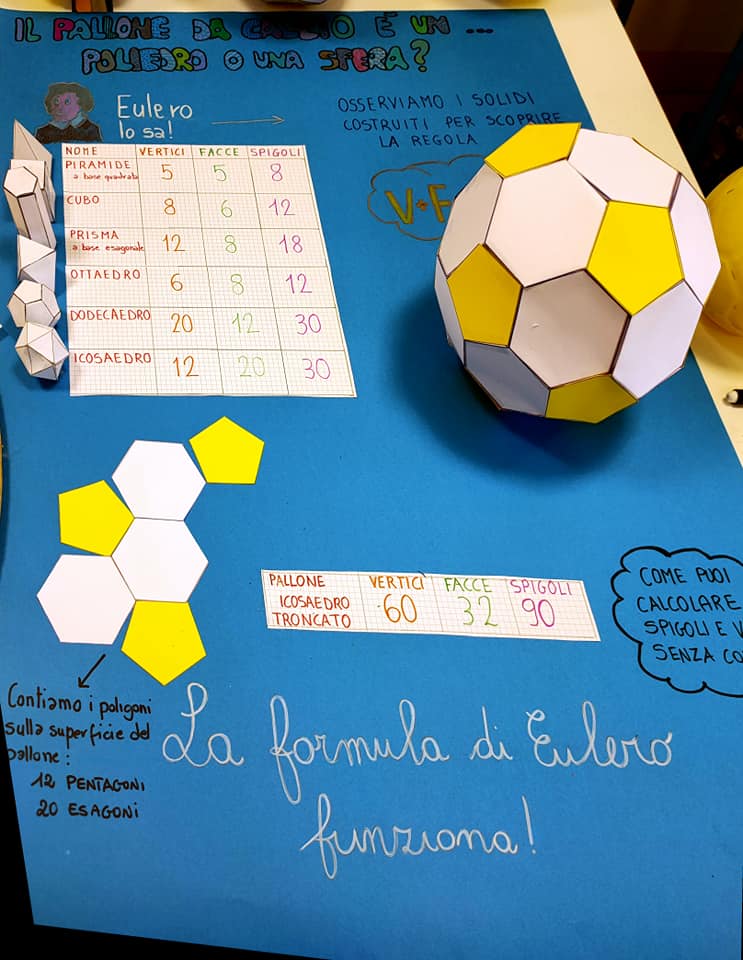 IL PALLONE DA CALCIO È UM ...
POLIEDRO O UNA SFERA?
Eulero
lo sa!
OSSERVIAMO I SOLIDI
COSTRUITI PER SCOPRIRE
LA REGOLA
V+F
NOME VERTICI FACCE SPIGOLI
PIRAMIDE
a base quadrata 5 5 8
CUBO 8 6 12
PRISMA
a base esagonale 12 8 18
OTTAEDRO 6 8 12
DODECAEDRO 20 12 30
ICOSAEDRO 12 20 30
PALLONE VERTICI FACCE SPIGOLI
ICOSAEDRO
TRONCATO 60 32 90
COME PUOI
CALCOLARE
SPIGOLI E V
SENZA CO
Contiamo i poligoni
sulla superficie del
pallone:
12 PENTAGONI
20 ESAGONI
La formula di Eulero
funziona!